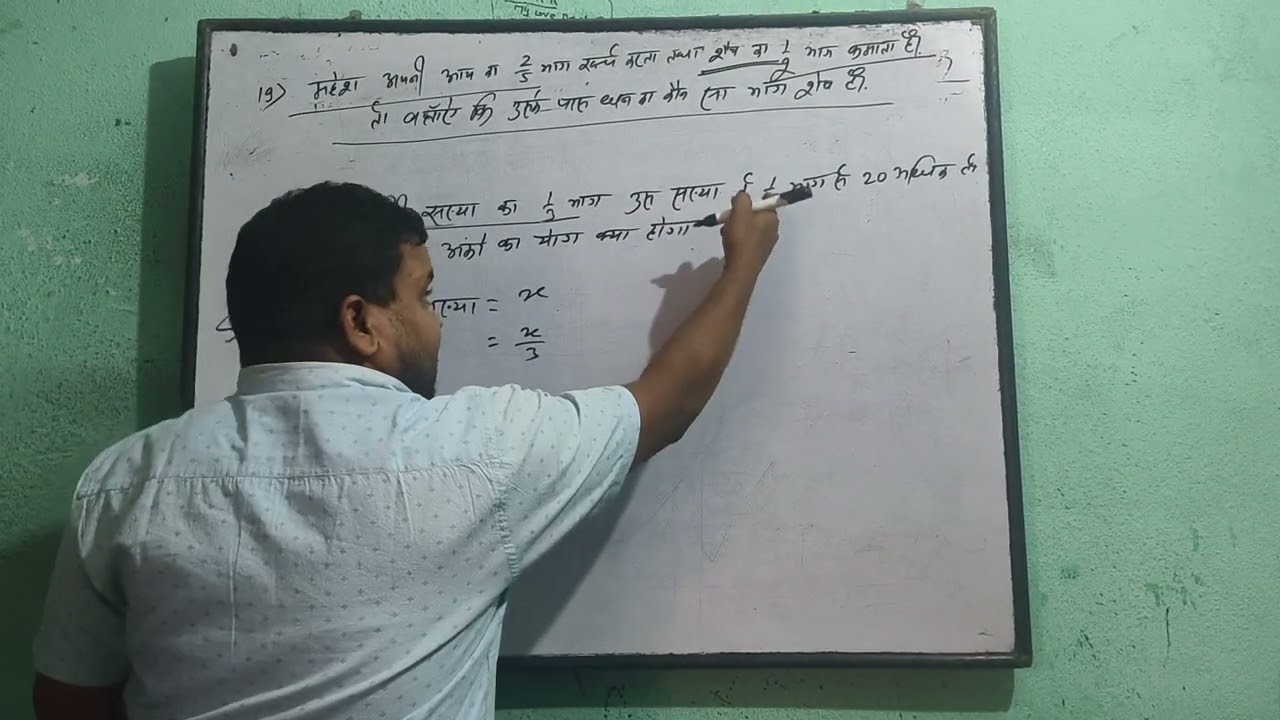 19) महेश अपनी आय का 2/5 भाग खर्च करता तथा शेष का 1/2 भाग कमाता है।
तो बताँए कि उसके पास धन का कौन सा भाग शेष है।
संख्या का 1/3 भाग उस संख्या 1/ भाग से 20 अधिक
अंको का योग क्या होगा
ख्या = x
= x/3